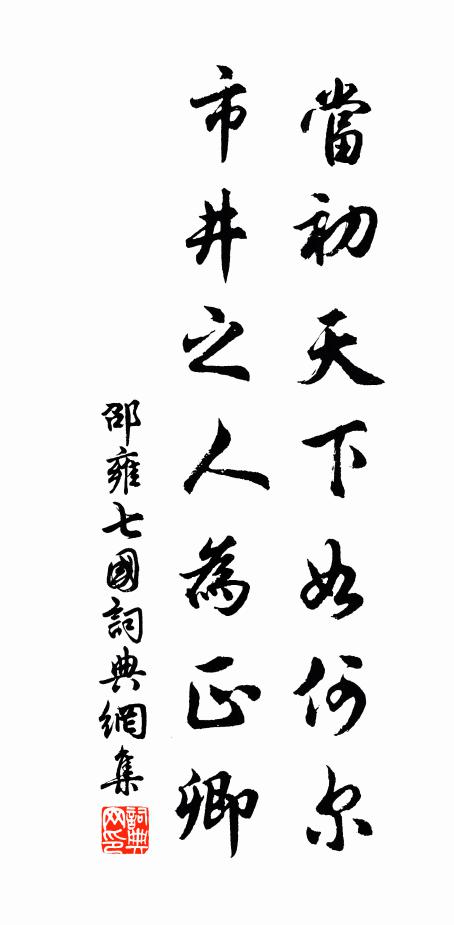 當初天下如何尔
市井之人為正卿
邵雍七國詞典網集
詞典网印